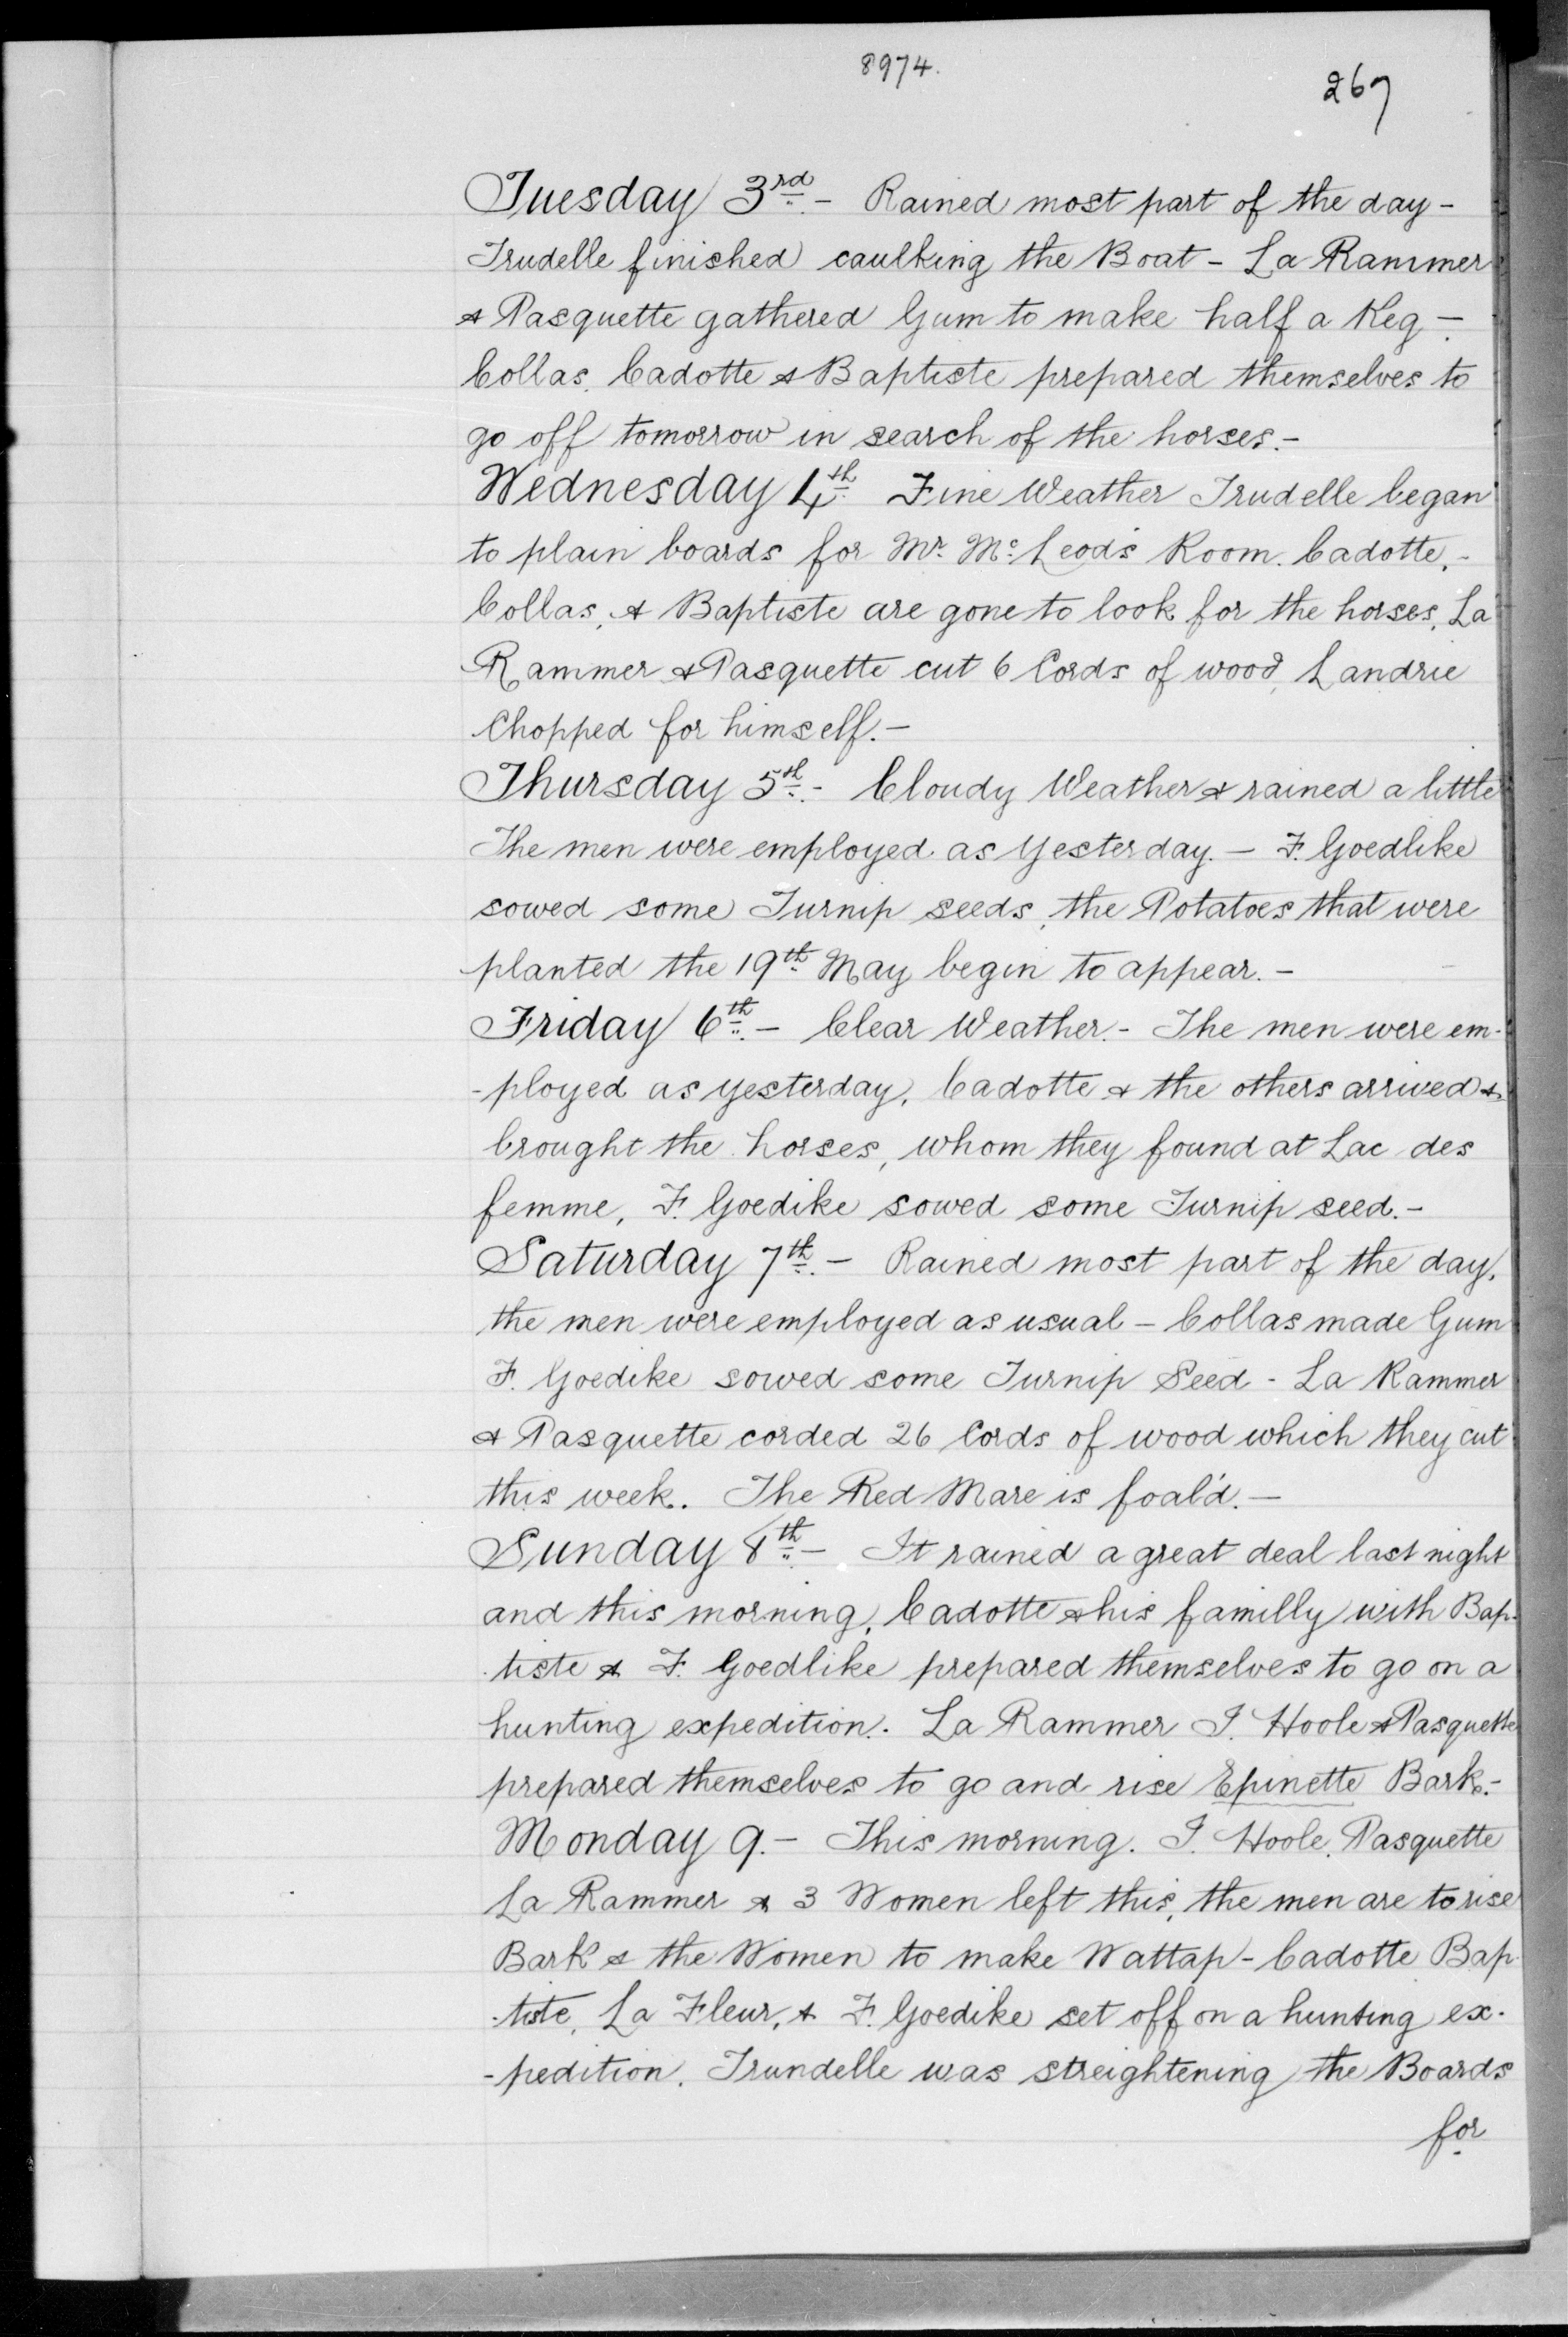 8974.
267
Tuesday 3rd.- Rained most part of the day -
Trudelle finished caulking the Boat - La Rammer
& Pasquette gathered Gum to make half a Keg -
Collas, Cadotte & Baptiste prepared themselves to
go off tomorrow in search of the horses.-
Wednesday 4th. Fine Weather Trudelle began
to plain boards for Mr. Mc.Leod's Room. Cadotte,-
Collas, & Baptiste are gone to look for the horses, La
Rammer & Pasquette cut 6 Cords of wood, Landrie
Chopped for himself.-
Thursday 5th.- Cloudy Weather & rained a little
The men were employed as Yesterday.- F. Goedlike
sowed some Turnip seeds, the Potatoes that were
planted the 19th. May begin to appear.-
Friday 6th.- Clear Weather.- The men were em-
-ployed as yesterday, Cadotte & the others arrived &
brought the horses, whom they found at Lac des
femme, F. Goedike sowed some Turnip seed.-
Saturday 7th.- Rained most part of the day,
the men were employed as usual - Collas made Gum
F. Goedike sowed some Turnip Seed - La Rammer
& Pasquette corded 26 Cords of wood which they cut
this week. The Red Mare is foal'd.-
Sunday 8th.- It rained a great deal last night
and this morning, Cadotte & his familly with Bap-
-tiste & F. Goedlike prepared themselves to go on a
hunting expedition. La Rammer J. Hoole & Pasquette
prepared themselves to go and rise Epinette Bark.-
Monday 9.- This morning. J. Hoole, Pasquette
La Rammer & 3 Women left this, the men are to rise
Bark & the Women to make Wattap - Cadotte Bap-
-tiste, La Fleur, & F. Goedike set off on a hunting ex-
-pedition. Trundelle was streightening the Boards
for